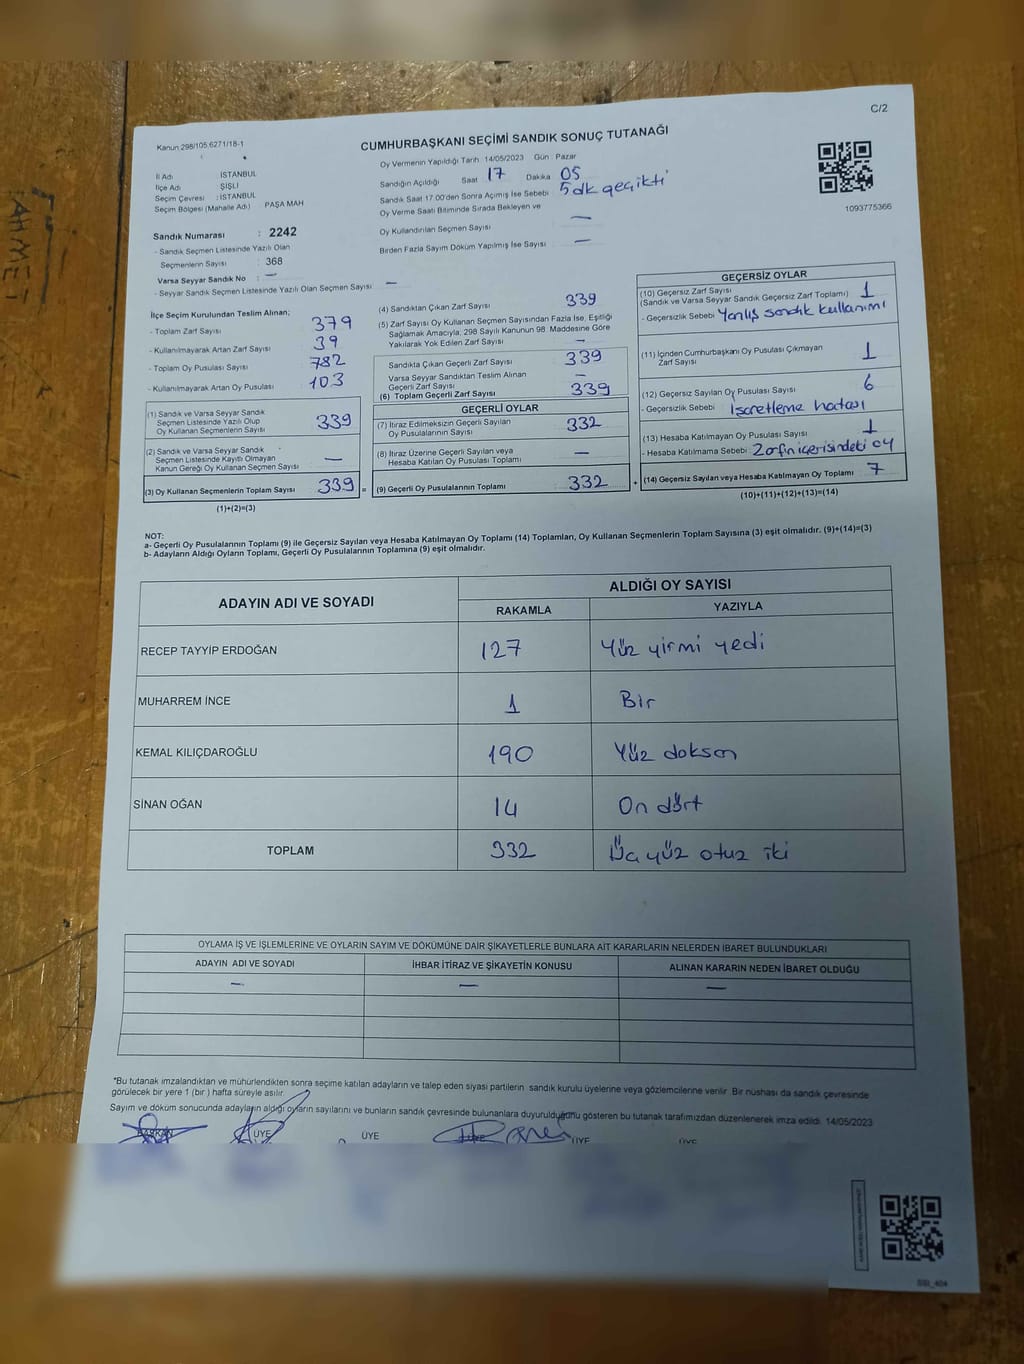 C/2
Kanun 298/105;6271/18-1
CUMHURBAŞKANI SEÇİMİ SANDIK SONUÇ TUTANAĞI
Oy Vermenin Yapıldığı Tarih 14/05/2023 Gün : Pazar
İl Adı İSTANBUL
İlçe Adı ŞİŞLİ
Seçim Çevresi : İSTANBUL
Seçim Bölgesi (Mahalle Adı) PAŞA MAH
Sandığın Açıldığı Saat 17 Dakika 05
Sandık Saat 17.00'den Sonra Açımış İse Sebebi 5 dk gecikti
Oy Verme Saati Bitiminde Sırada Bekleyen ve
Oy Kullandırılan Seçmen Sayısı —
Birden Fazla Sayım Döküm Yapılmış İse Sayısı —
1093775366
Sandık Numarası : 2242
- Sandık Seçmen Listesinde Yazılı Olan
Seçmenlerin Sayısı : 368
Varsa Seyyar Sandık No : —
- Seyyar Sandık Seçmen Listesinde Yazılı Olan Seçmen Sayısı : —
İlçe Seçim Kurulundan Teslim Alınan;
- Toplam Zarf Sayısı 379
- Kullanılmayarak Artan Zarf Sayısı 39
- Toplam Oy Pusulası Sayısı 782
- Kullanılmayarak Artan Oy Pusulası 103
(1) Sandık ve Varsa Seyyar Sandık
Seçmen Listesinde Yazılı Olup
Oy Kullanan Seçmenlerin Sayısı 339
(2) Sandık ve Varsa Seyyar Sandık
Seçmen Listesinde Kayıtlı Olmayan
Kanun Gereği Oy Kullanan Seçmen Sayısı —
(3) Oy Kullanan Seçmenlerin Toplam Sayısı 339 =
(1)+(2)=(3)
(4) Sandıktan Çıkan Zarf Sayısı 339
(5) Zarf Sayısı Oy Kullanan Seçmen Sayısından Fazla İse, Eşitliği
Sağlamak Amacıyla, 298 Sayılı Kanunun 98. Maddesine Göre
Yakılarak Yok Edilen Zarf Sayısı —
Sandıkta Çıkan Geçerli Zarf Sayısı 339
Varsa Seyyar Sandıktan Teslim Alınan
Geçerli Zarf Sayısı —
(6) Toplam Geçerli Zarf Sayısı 339
GEÇERLİ OYLAR
(7) İtiraz Edilmeksizin Geçerli Sayılan
Oy Pusulalarının Sayısı 332
(8) İtiraz Üzerine Geçerli Sayılan veya
Hesaba Katılan Oy Pusulası Toplamı —
(9) Geçerli Oy Pusulalarının Toplamı 332 +
GEÇERSİZ OYLAR
(10) Geçersiz Zarf Sayısı
(Sandık ve Varsa Seyyar Sandık Geçersiz Zarf Toplamı) 1
- Geçersizlik Sebebi Yanlış sandık kullanımı
(11) İçinden Cumhurbaşkanı Oy Pusulası Çıkmayan
Zarf Sayısı 1
(12) Geçersiz Sayılan Oy Pusulası Sayısı 6
- Geçersizlik Sebebi İşaretleme hatası
(13) Hesaba Katılmayan Oy Pusulası Sayısı 1
- Hesaba Katılmama Sebebi Zarfın içerisindeki oy
(14) Geçersiz Sayılan veya Hesaba Katılmayan Oy Toplamı 7
(10)+(11)+(12)+(13)=(14)
NOT:
a- Geçerli Oy Pusulalarının Toplamı (9) ile Geçersiz Sayılan veya Hesaba Katılmayan Oy Toplamı (14) Toplamları, Oy Kullanan Seçmenlerin Toplam Sayısına (3) eşit olmalıdır. (9)+(14)=(3)
b- Adayların Aldığı Oyların Toplamı, Geçerli Oy Pusulalarının Toplamına (9) eşit olmalıdır.
ADAYIN ADI VE SOYADI ALDIĞI OY SAYISI
RAKAMLA YAZIYLA
RECEP TAYYİP ERDOĞAN 127 Yüz yirmi yedi
MUHARREM İNCE 1 Bir
KEMAL KILIÇDAROĞLU 190 Yüz doksan
SİNAN OĞAN 14 On dört
TOPLAM 332 Üç yüz otuz iki
OYLAMA İŞ VE İŞLEMLERİNE VE OYLARIN SAYIM VE DÖKÜMÜNE DAİR ŞİKAYETLERLE BUNLARA AİT KARARLARIN NELERDEN İBARET BULUNDUKLARI
ADAYIN ADI VE SOYADI İHBAR İTİRAZ VE ŞİKAYETİN KONUSU ALINAN KARARIN NEDEN İBARET OLDUĞU
— — —
*Bu tutanak imzalandıktan ve mühürlendikten sonra seçime katılan adayların ve talep eden siyasi partilerin sandık kurulu üyelerine veya gözlemcilerine verilir. Bir nüshası da sandık çevresinde
görülecek bir yere 1 (bir) hafta süreyle asılır.
Sayım ve döküm sonucunda adayların aldığı oyların sayılarını ve bunların sandık çevresinde bulunanlara duyurulduğunu gösteren bu tutanak tarafımızdan düzenlenerek imza edildi. 14/05/2023
BAŞKAN ÜYE ÜYE ÜYE ÜYE ÜYE